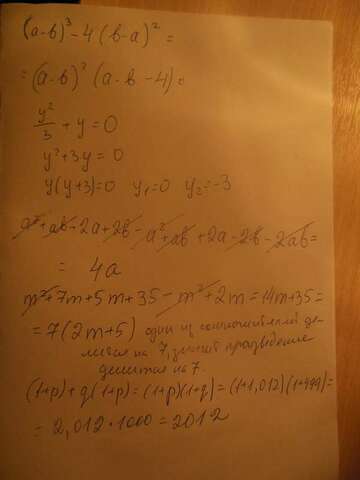 (a-b)³-4(b-a)²=
=(a-b)²(a-b-4)=
y²/3+y=0
y²+3y=0
y(y+3)=0 y₁=0 y₂=-3
a²+ab-2a+2b-a²+ab+2a-2b-2ab=
= 4a
m²+7m+5m+35-m²+2m=14m+35=
=7(2m+5) один из сомножителей де-
лится на 7, значит произведение
делится на 7.
(1+p)+q(1+p)=(1+p)(1+q)=(1+1,012)(1+999)=
=2,012·1000=2012